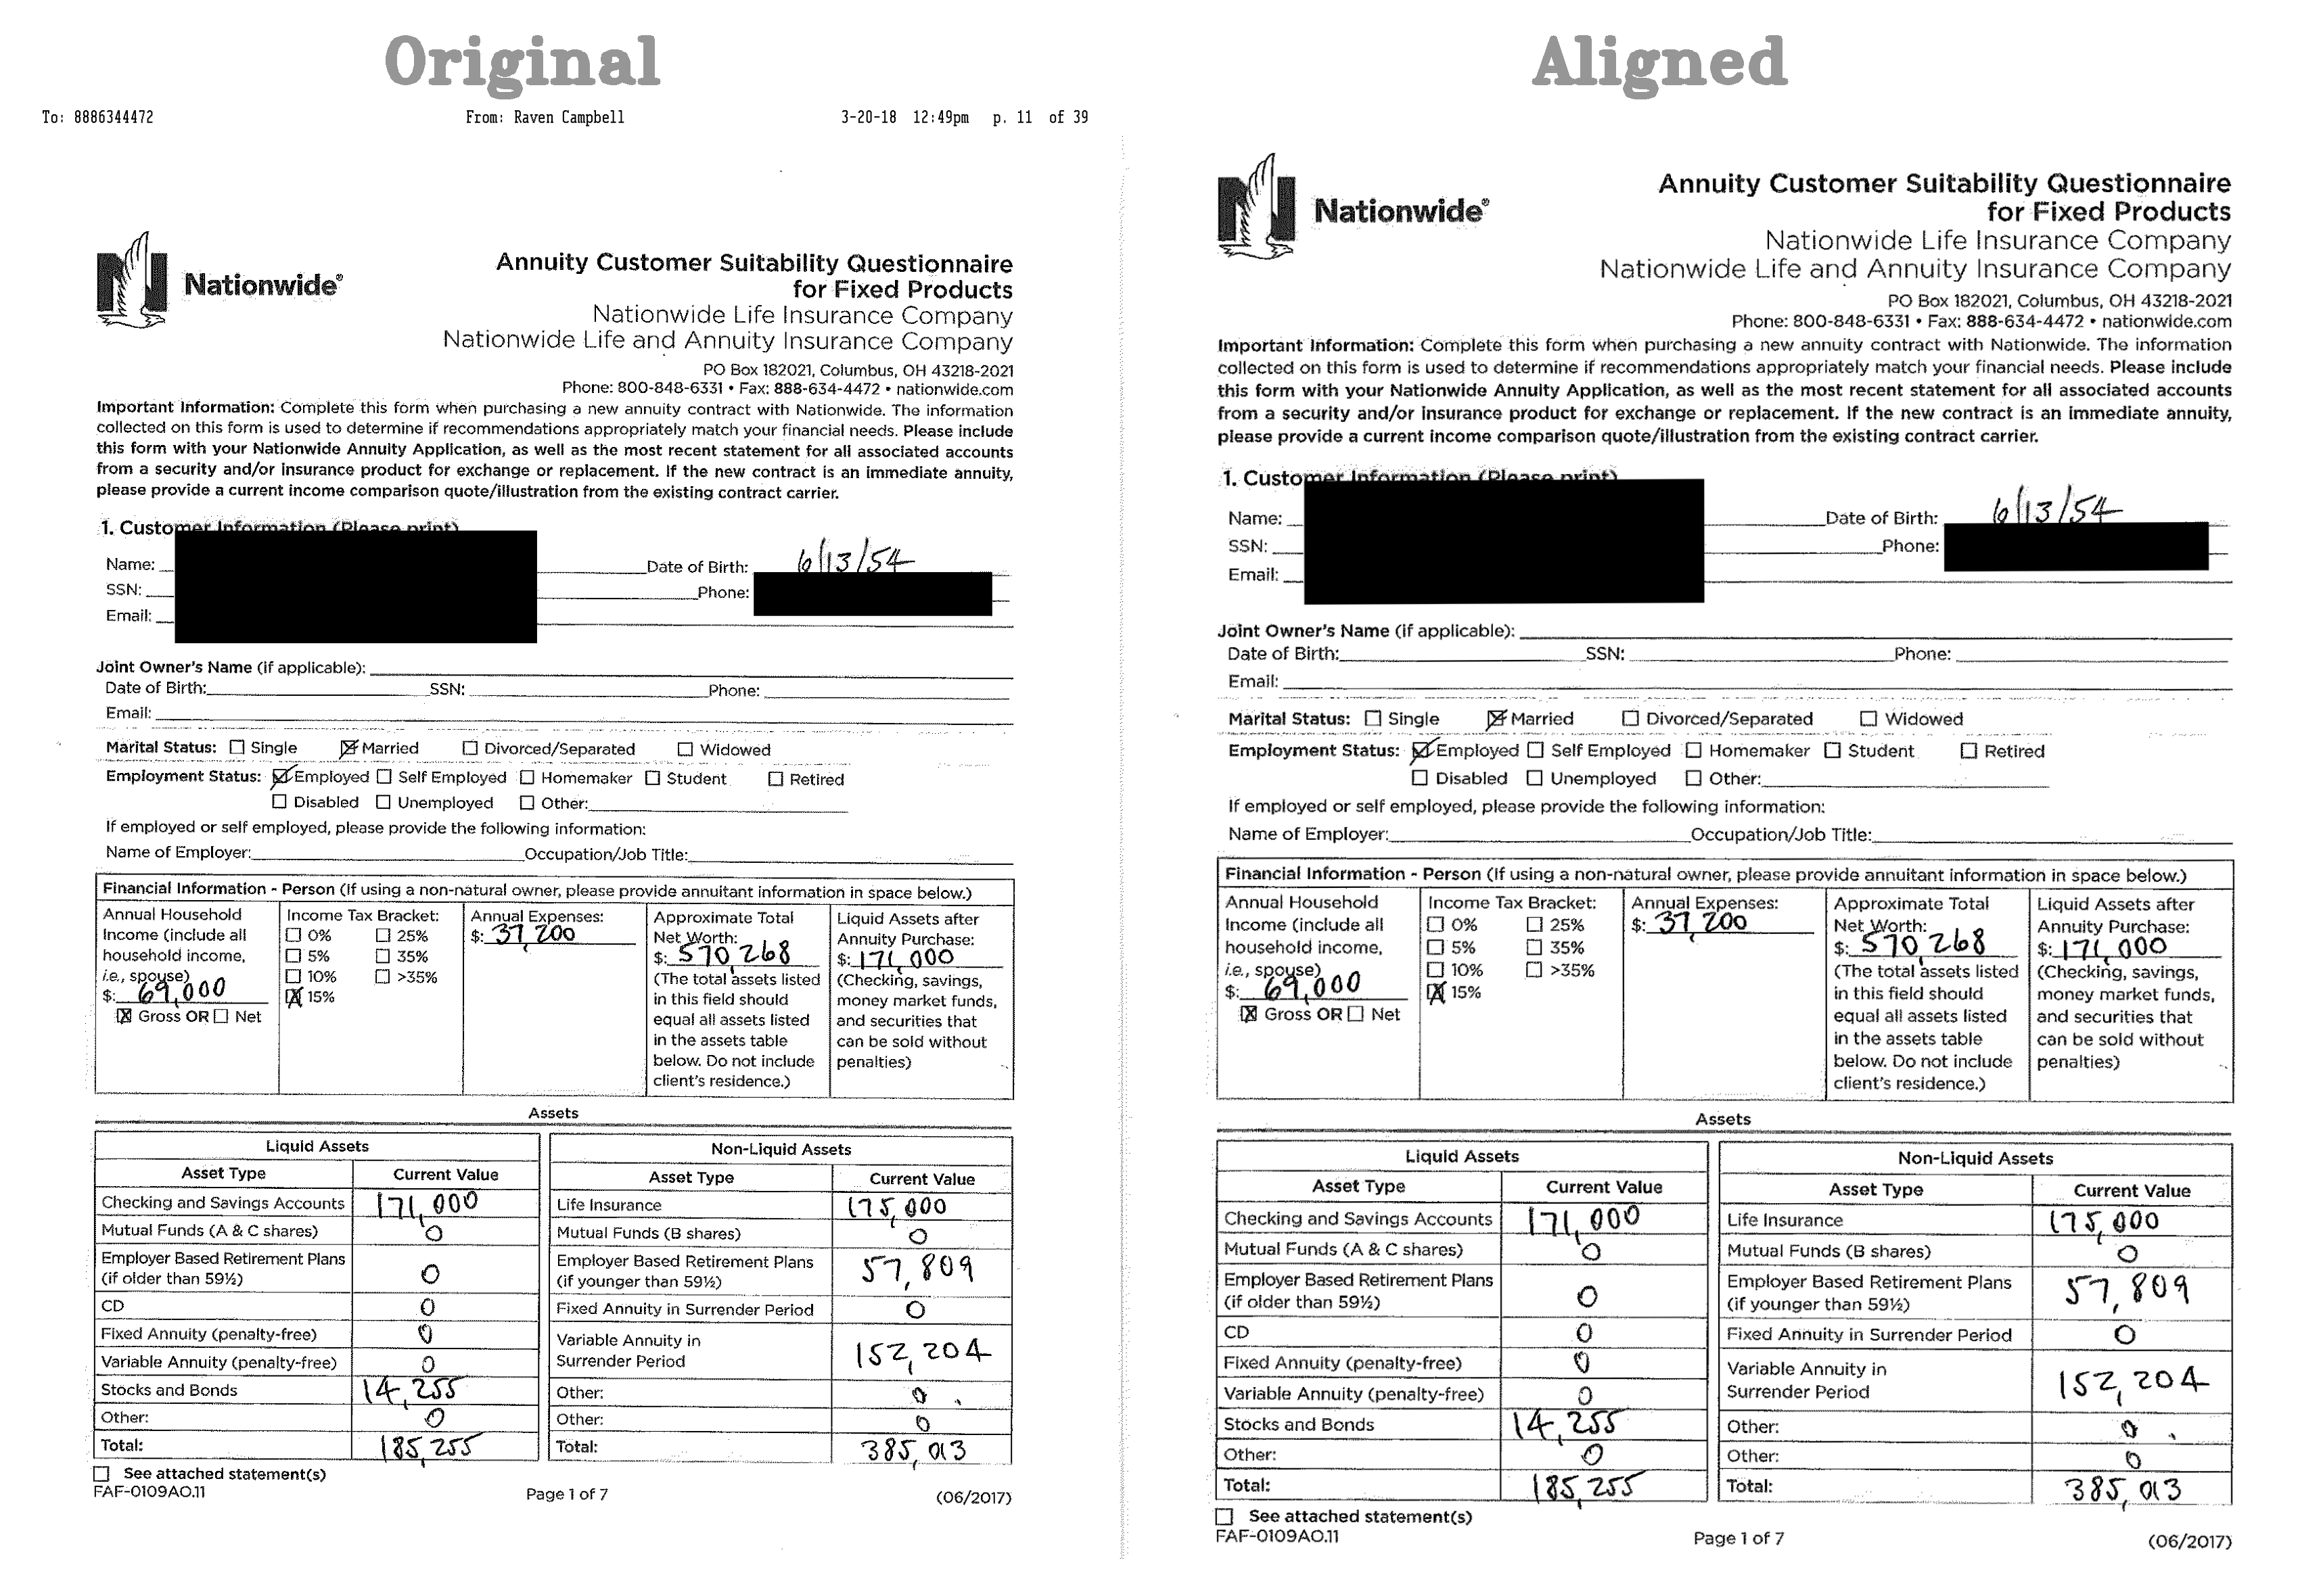 Original
To: 8886344472 From: Raven Campbell 3-20-18 12:49pm p. 11 of 39
Nationwide®
Annuity Customer Suitability Questionnaire
for Fixed Products
Nationwide Life Insurance Company
Nationwide Life and Annuity Insurance Company
PO Box 182021, Columbus, OH 43218-2021
Phone: 800-848-6331 • Fax: 888-634-4472 • nationwide.com
Important Information: Complete this form when purchasing a new annuity contract with Nationwide. The information
collected on this form is used to determine if recommendations appropriately match your financial needs. Please include
this form with your Nationwide Annuity Application, as well as the most recent statement for all associated accounts
from a security and/or insurance product for exchange or replacement. If the new contract is an immediate annuity,
please provide a current income comparison quote/illustration from the existing contract carrier.
1. Customer Information (Please print)
Name: Date of Birth: 6/13/54
SSN: Phone:
Email:
Joint Owner's Name (if applicable):
Date of Birth: SSN: Phone:
Email:
Marital Status: Single Married Divorced/Separated Widowed
Employment Status: Employed Self Employed Homemaker Student Retired
Disabled Unemployed Other:
If employed or self employed, please provide the following information:
Name of Employer: Occupation/Job Title:
Financial Information - Person (If using a non-natural owner, please provide annuitant information in space below.)
Annual Household
Income (include all
household income,
i.e., spouse)
$: 69,000
Gross OR Net
Income Tax Bracket:
0% 25%
5% 35%
10% >35%
15%
Annual Expenses:
$: 37,200
Approximate Total
Net Worth:
$: 570,268
(The total assets listed
in this field should
equal all assets listed
in the assets table
below. Do not include
client's residence.)
Liquid Assets after
Annuity Purchase:
$: 171,000
(Checking, savings,
money market funds,
and securities that
can be sold without
penalties)
Assets
Liquid Assets
Asset Type Current Value
Checking and Savings Accounts 171,000
Mutual Funds (A & C shares) 0
Employer Based Retirement Plans
(if older than 59½) 0
CD 0
Fixed Annuity (penalty-free) 0
Variable Annuity (penalty-free) 0
Stocks and Bonds 14,255
Other: 0
Total: 185,255
Non-Liquid Assets
Asset Type Current Value
Life Insurance 175,000
Mutual Funds (B shares) 0
Employer Based Retirement Plans
(if younger than 59½) 57,809
Fixed Annuity in Surrender Period 0
Variable Annuity in
Surrender Period 152,204
Other: 0
Other: 0
Total: 385,013
See attached statement(s)
FAF-0109AO.11 Page 1 of 7 (06/2017)
Aligned
Nationwide®
Annuity Customer Suitability Questionnaire
for Fixed Products
Nationwide Life Insurance Company
Nationwide Life and Annuity Insurance Company
PO Box 182021, Columbus, OH 43218-2021
Phone: 800-848-6331 • Fax: 888-634-4472 • nationwide.com
Important Information: Complete this form when purchasing a new annuity contract with Nationwide. The information
collected on this form is used to determine if recommendations appropriately match your financial needs. Please include
this form with your Nationwide Annuity Application, as well as the most recent statement for all associated accounts
from a security and/or insurance product for exchange or replacement. If the new contract is an immediate annuity,
please provide a current income comparison quote/illustration from the existing contract carrier.
1. Customer Information (Please print)
Name: Date of Birth: 6/13/54
SSN: Phone:
Email:
Joint Owner's Name (if applicable):
Date of Birth: SSN: Phone:
Email:
Marital Status: Single Married Divorced/Separated Widowed
Employment Status: Employed Self Employed Homemaker Student Retired
Disabled Unemployed Other:
If employed or self employed, please provide the following information:
Name of Employer: Occupation/Job Title:
Financial Information - Person (If using a non-natural owner, please provide annuitant information in space below.)
Annual Household
Income (include all
household income,
i.e., spouse)
$: 69,000
Gross OR Net
Income Tax Bracket:
0% 25%
5% 35%
10% >35%
15%
Annual Expenses:
$: 37,200
Approximate Total
Net Worth:
$: 570,268
(The total assets listed
in this field should
equal all assets listed
in the assets table
below. Do not include
client's residence.)
Liquid Assets after
Annuity Purchase:
$: 171,000
(Checking, savings,
money market funds,
and securities that
can be sold without
penalties)
Assets
Liquid Assets
Asset Type Current Value
Checking and Savings Accounts 171,000
Mutual Funds (A & C shares) 0
Employer Based Retirement Plans
(if older than 59½) 0
CD 0
Fixed Annuity (penalty-free) 0
Variable Annuity (penalty-free) 0
Stocks and Bonds 14,255
Other: 0
Total: 185,255
Non-Liquid Assets
Asset Type Current Value
Life Insurance 175,000
Mutual Funds (B shares) 0
Employer Based Retirement Plans
(if younger than 59½) 57,809
Fixed Annuity in Surrender Period 0
Variable Annuity in
Surrender Period 152,204
Other: 0
Other: 0
Total: 385,013
See attached statement(s)
FAF-0109AO.11 Page 1 of 7 (06/2017)